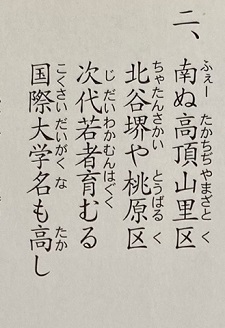 二、
南ぬ高頂山里区
ふぇー たかちぢやまざと く
北谷堺や桃原区
ちゃたんさかい とうばる く
次代若者育むる
じだいわかむんはぐく
国際大学名も高し
こくさいだいがく な たか